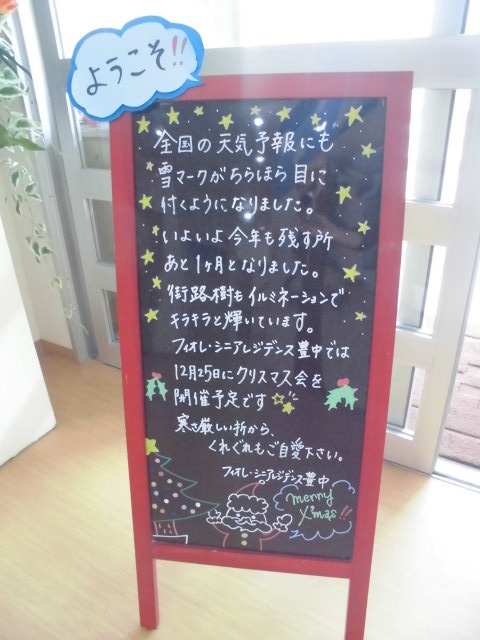 ようこそ!!
全国の天気予報にも
雪マークがちらほら目に
付くようになりました。
いよいよ今年も残す所
あと1ヶ月となりました。
街路樹もイルミネーションで
キラキラと輝いています。
フィオレ・シニアレジデンス豊中では
12月25日にクリスマス会を
開催予定です
寒さ厳しい折から、
くれぐれもご自愛下さい。
フィオレ・シニアレジデンス豊中
merry
X'mas!!